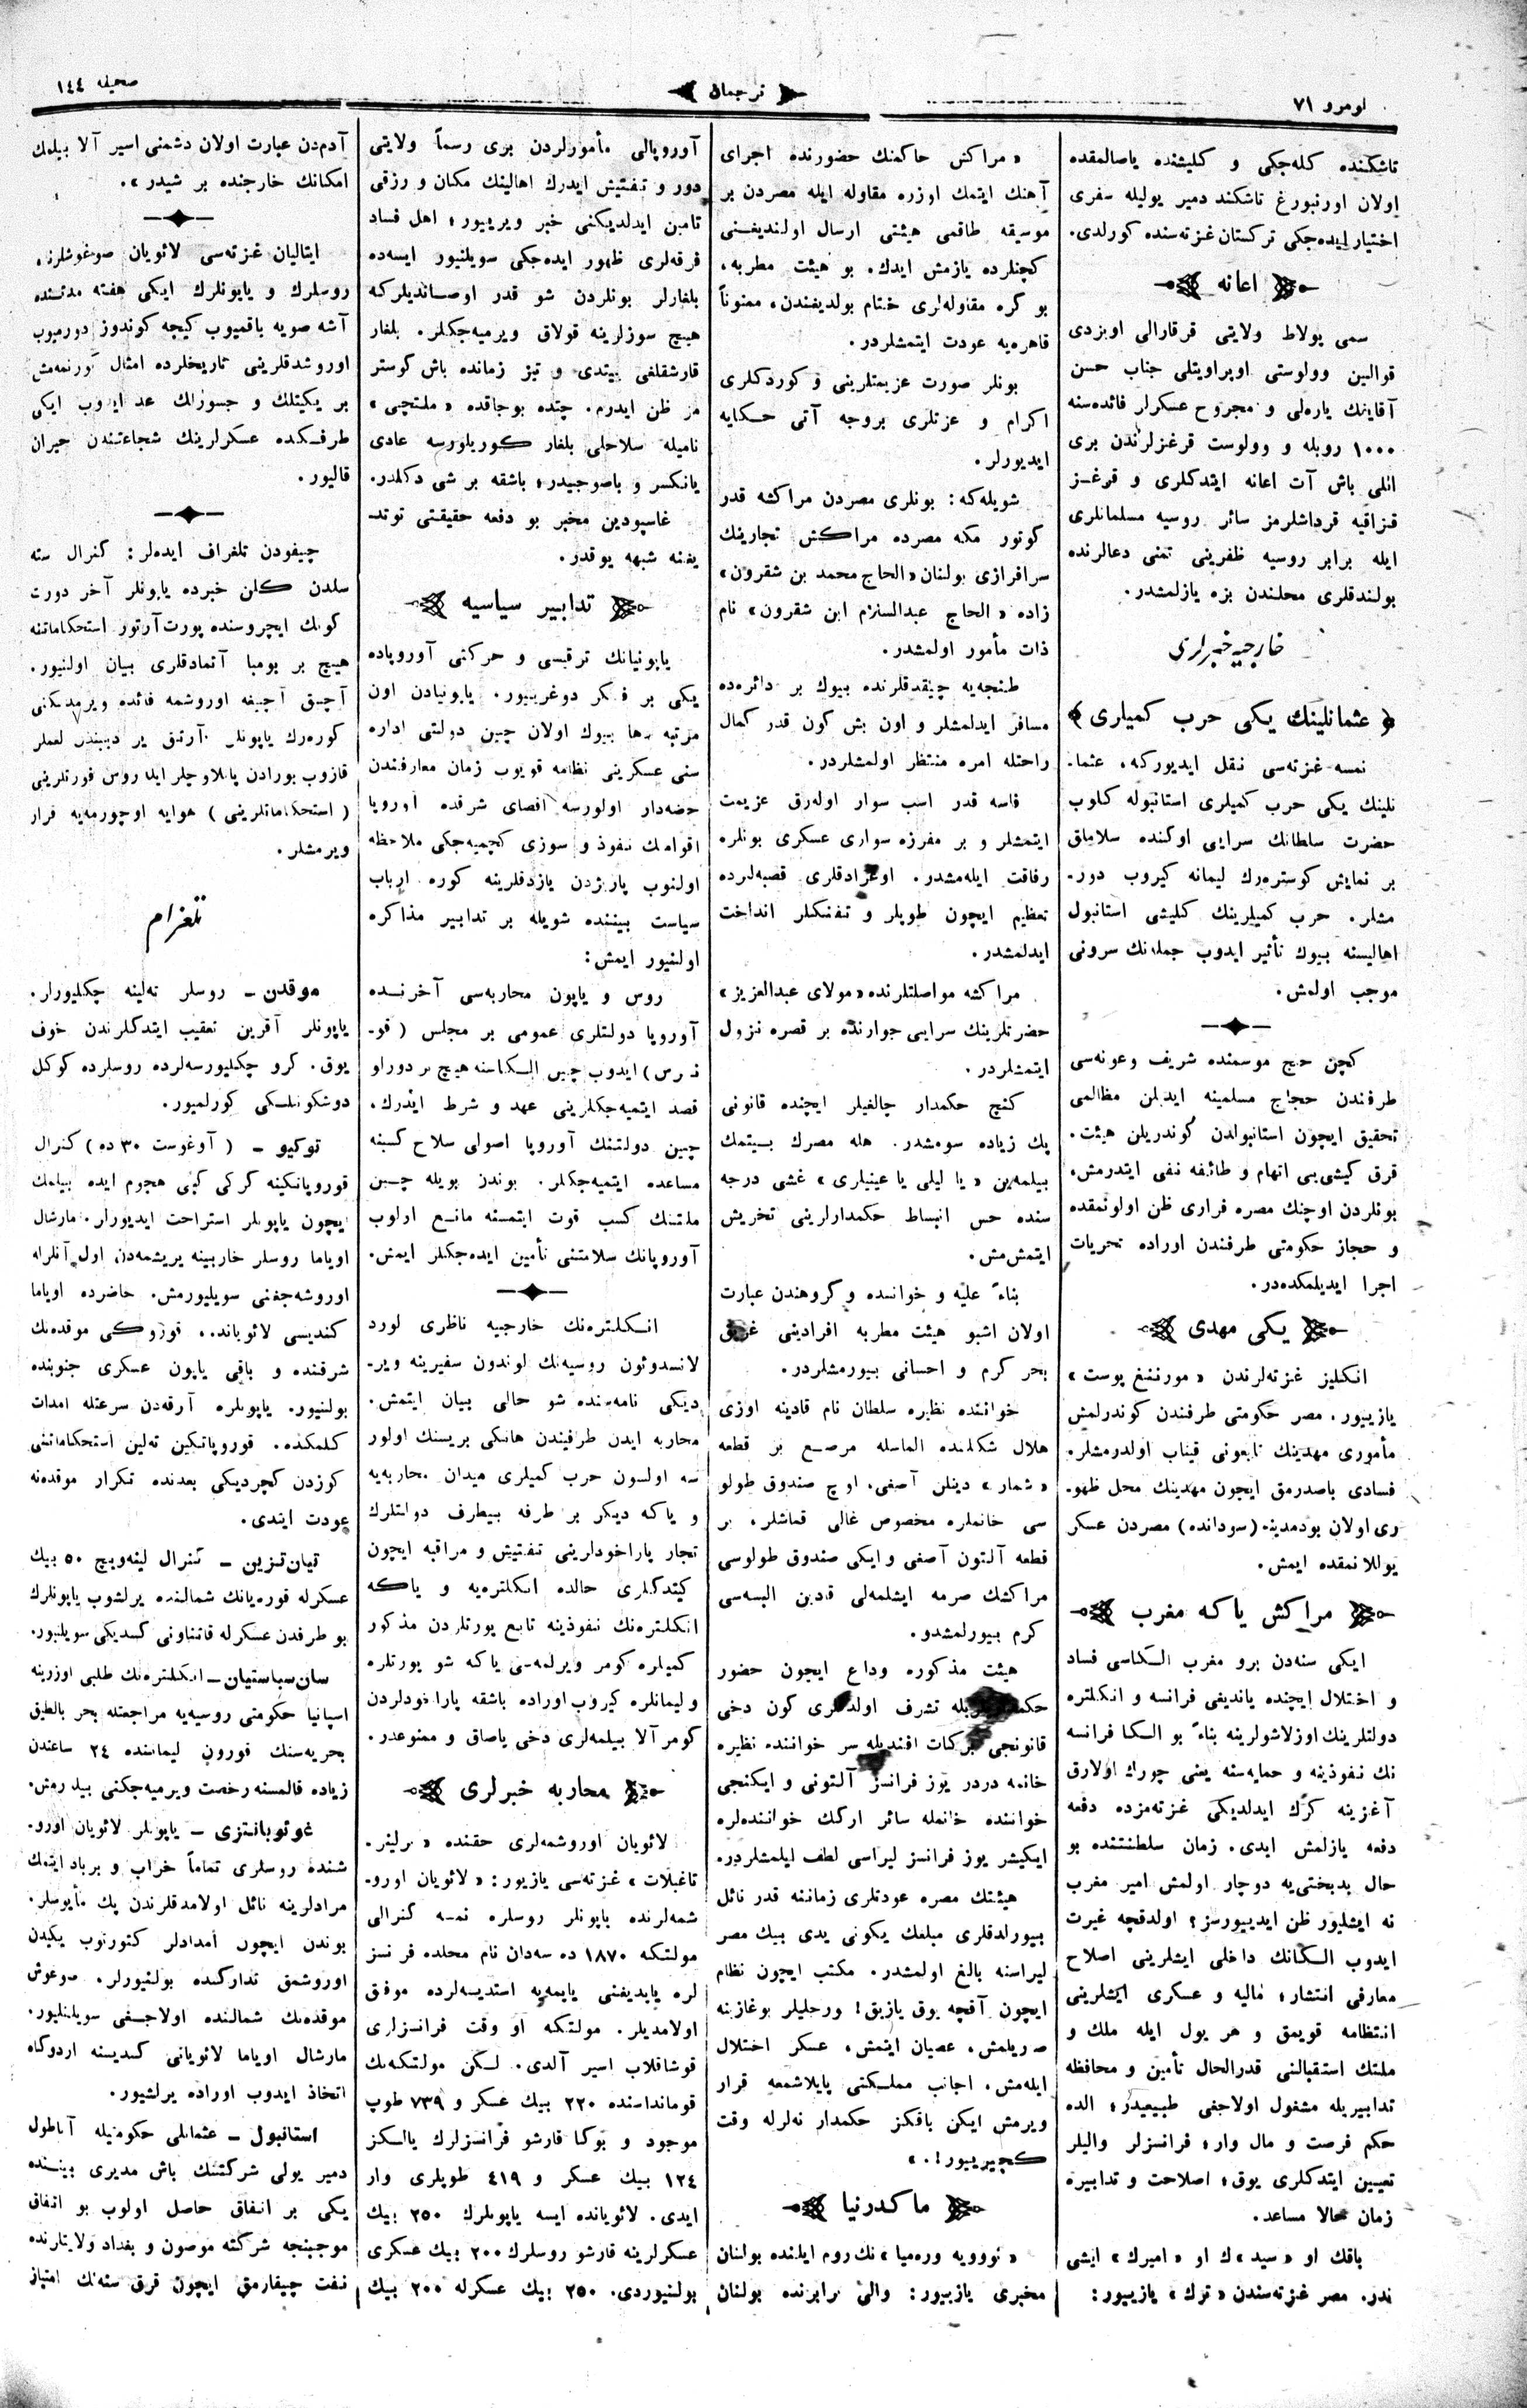 نومرو ٧١
ترجمان
صحیفه ١٤٤
تاشکنده کله‌جکی و کلیشنده یاصالمقده
اولان اورنبورغ تاشکند دمیر یولیله سفری
اختیار ایده‌جکی ترکستان غزته‌سنده کورلدی.
اعانه
سمی پولاط ولایتی قرقارالی اویزدی
قوالین وولوستی اوپراویتلی جناب حسن
آقاینك یاره‌لی و مجروح عسکرلر فائده‌سنه
١٠٠٠ روبله و وولوست قرغزلرندن بری
اللی باش آت اعانه ایتدکلری و قرغـز
قـزاقیه قرداشلرمز سائر روسیه مسلمانلری
ایله برابر روسیه ظفرینی تمنی دعالرنده
بولندقلری محلندن بزه یازلمشدر.
خارجیه خبرلری
﴿ عثمانلینك یکی حرب کمیلری ﴾
نمسه غزته‌سی نقل ایدیورکه، عثما-
نلینك یکی حرب کمیلری استانبوله کلوب
حضرت سلطانك سرایی اوکنده سلاملق
بر نمایش کوستره‌رك لیمانه کیروب دور-
مشلر. حرب کمیلرینك کلیشی استانبول
اهالیسنه بیوك تأثیر ایدوب جمله‌نك سرونی
موجب اولمش.
کچن حج موسمنده شریف وعونه‌سی
طرفندن حجاج مسلمینه ایدیلن مظالمی
تحقیق ایچون استانبولدن کوندریلن هیئت.
قرق کیشی‌یی اتهام و طائفه نفی ایتدرمش،
بونلردن اوچنك مصره فراری ظن اولونمقده
و حجاز حکومتی طرفندن اوراده تحریات
اجرا ایدیلمکده‌در.
یکی مهدی
انکلیز غزته‌لرندن « مورننغ پوست »
یازییور. مصر حکومتی طرفندن کوندرلمش
مأموری مهدینك تابعونی قیناب اولدرمشلر.
فسادی باصدرمق ایچون مهدینك محل ظهو-
ری اولان بودمدینه (سودانده) مصردن عسکر
یوللانمقده ایمش.
مراکش یاکه مغرب
ایکی سنه‌دن برو مغرب الـکاسی فساد
و اختلال ایچنده یاندیغی فرانسه و انکلتره
دولتلرینك اوزلاشولرینه بناءً بو الـکا فرانسه
نك نفوذینه و حمایه‌سنه یعنی چورك اولارق
آغزینه کرك ایدلدیکی غزته‌مزده دفعه
دفعه یازلمش ایدی. زمان سلطنتنده بو
حال بدبختی‌یه دوچار اولمش امیر مغرب
نه ایشلیور ظن ایدییورسز؟ اولدقچه غیرت
ایدوب الـکانك داخلی ایشلرینی اصلاح
معارفی انتشار؛ مالیه و عسکری ایشلرینی
انتظامه قویمق و هر یول ایله ملك و
ملتك استقبالنی قدرالحال تأمین و محافظه
تدابیریله مشغول اولاجغی طبیعیدر؛ الده
حکم فرصت و مال وار؛ فرانسزلر والیلر
تعیین ایتدکلری یوق؛ اصلاحت و تدابیره
زمان حالا مساعد.
باقك او « سید »ك او « امیرك » ایشی
ندر. مصر غزته‌سندن « ترك » یازییور:
« مراکش حاکمنك حضورنده اجرای
آهنك ایتمك اوزره مقاوله ایله مصردن بر
موسیقه طاقمی هیئتی ارسال اولندیغـنی
کچنلرده یازمش ایدك. بو هیئت مطربه،
بو کره مقاوله‌لری ختام بولدیغندن، ممنوناً
قاهره‌یه عودت ایتمشلردر.
بونلر صورت عزیمتلرینی و کوردکلری
اکرام و عزتلری بروجه آتی حـکایه
ایدیورلر.
شویله‌که: بونلری مصردن مراکشه قدر
کوتورمکه مصرده مراکش تجارینك
سرافرازی بولنان «الحاج محمد بن شقرون»
زاده « الحاج عبدالسلام ابن شقرون » نام
ذات مأمور اولمشدر.
طنجه‌یه چیقدقلرنده بیوك بر دائره‌ده
مسافر ایدلمشلر و اون بش کون قدر کمال
راحتله امره منتظر اولمشلردر.
فاسه قدر اسب سوار اوله‌رق عزیمت
ایتمشلر و بر مفرزه سواری عسکری بونلره
رفاقت ایله‌مشدر. اوغرادقلری قصبه‌لرده
تعظیم ایچون طوپلر و تفنکلر انداخت
ایدلمشدر.
مراکشه مواصلتلرنده « مولای عبدالعزیز »
حضرتلرینك سرایی جوارنده بر قصره نزول
ایتمشلردر.
کنج حکمدار چالغیلر ایچنده قانونی
پك زیاده سومشدر. هله مصرك بـیتمك
بیلمه‌ین « یا لیلی یا عینیلری » غشی درجه
سنده حس انبساط حکمدارلرینی تخریش
ایتمش‌مش.
بناءً علیه و خواننده و کروهندن عبارت
اولان اشبو هیئت مطربه افرادینی غریق
بحر کرم و احسانی بیورمشلردر.
خواننده نظیره سلطان نام قادینه اوزی
هلال شکلنده الماسله مرصـع بر قطعه
« شمار » دینلن آصغی، اوچ صندوق طولو
سی خانملره مخصوص غالی قماشلر، بر
قطعه آلتون آصغی وایکی صندوق طولوسی
مراکشك صرمه ایشلمه‌لی قادین البسه‌سی
کرم بیورلمشدو.
هیئت مذکوره وداع ایچون حضور
تشرف اولدقلری کون دخی
قانونجی برکات افندیله سر خواننده نظیره
خانمه دردر یوز فرانسز آلتونی و ایکنجی
خواننده خانمله سائر ارکك خواننده‌لره
ایکیشر یوز فرانسز لیراسی لطف ایلمشلردر.
هیئتك مصره عودتلری زماننه قدر نائل
بیورلدقلری مبلغك یکونی یدی بیك مصر
لیراسنه بالغ اولمشدر. مکتب ایچون نظام
ایچون آقچه یوق یازیق! ورجلیلر بوغازینه
صریلمش، عصیان ایتمش، عسکر اختلال
ایله‌مش. اجانب مملـکتی پایلاشمغه قرار
ویرمش ایکن باقکز حکمدار نه‌لرله وقت
کچیرییور!. »
ماکدونیا
« نوویه وره‌میا »نك روم ایلنده بولنان
مخبری یازییور: والی برابرنده بولنان
آوروپالی مأمورلردن بری رسماً ولایتی
دور و تفتیش ایدرك اهالینك مکان و رزقی
تامین ایدلدیکنی خبر ویرییور؛ اهل فساد
فرقه‌لری ظهور ایده‌جکی سویلنیور ایسه‌ده
بلغارلر بونلردن شو قدر اوصـاندیلرکه
هیچ سوزلرینه قولاق ویرمیه‌جکلر. بلغار
قارشقلغی بیتدی و تیز زمانده باش کوستر
مز ظن ایدرم. چتده بوجاقده « ملتچی »
نامیله سلاحلی بلغار کوریلورسه عادی
یانکسر و باصوجیدر؛ باشقه بر شی دکلدر.
غاسپودین مخبر بو دفعه حقیقتی توتد-
یغنه شبهه یوقدر.
تدابیر سیاسیه
یاپونیانك ترقیسی و حرکتی آوروپاده
یکی بر فکر دوغریییور. یاپونیادن اون
مرتبه دها بیوك اولان چین دولتی اداره
سنی عسکرینی نظامه قویوب زمان معارفندن
حصه‌دار اولورسه اقصای شرقده اوروپا
اقوامك نفوذ و سوزی کچمیه‌جکی ملاحظه
اولنوب پاریژدن یازدقلرینه کوره ارباب
سیاست بیننده شویله بر تدابیر مذاکره
اولنیور ایمش:
روس و یاپون محاربه‌سی آخرنـده
آوروپا دولتلری عمومی بر مجلس ( قو-
نغرس) ایدوب چین الـکاسنه هیچ بر دورلو
قصد ایتمیه‌جکلرینی عهد و شرط ایدرك،
چین دولتنك آوروپا اصولی سلاح کسبنه
مساعده ایتمیه‌جکلر. بوندن بویله چـین
ملتنك کسب قوت ایتمسنه مانـع اولوب
آوروپانك سلامتنی تأمین ایده‌جکلر ایمش.
انـکلتره‌نك خارجیه ناظری لورد
لانسدوئون روسیه‌نك لوندون سفیرینه ویر-
دیکی نامه‌سنده شو حالی بیان ایتمش.
محاربه ایدن طرفیندن هانکی بریسنك اولور
سه اولسون حرب کمیلری میدان محاربه‌یه
و یاکه دیکر بر طرفه بیطرف دولتلرك
تجار پاراخودلرینی تفتیش و مراقبه ایچون
کیتدکلری حالده انکلتره‌یه و یاکه
انکلتره‌نك نفوذینه تابع پورتلردن مذکور
کمیلره کومر ویرلمه‌سی یاکه شو پورتلره
و لیمانلره کیروب اوراده باشقه پاراخودلردن
کومر آلا بیلمه‌لری دخی یاصاق و ممنوعدر.
محاربه خبرلری
لائویان اوروشمه‌لری حقنده « برلینر
تاغبلات » غزته‌سی یازیور: « لائویان اورو-
شمه‌لرنده یاپونلر روسلره نمسه گنرالی
مولتکه ١٨٧٠ ده سه‌دان نام محلده فرنسز
لره یاپدیغنی یاپمه‌یه استدیسه‌لرده موفق
اولامدیلر. مولتکه او وقت فرانسزلری
قوشاقلاب اسیر آلدی. لـکن مولتکه‌نك
قومانداسنده ٢٢٠ بیك عسکر و ٧٣٩ طوپ
موجود و بوکا قارشو فرانسزلرك یالـکز
١٢٤ بیك عسکر و ٤١٩ طوپلری وار
ایدی. لائویانده ایسه یاپونلرك ٢٥٠ بیك
عسکرلرینه قارشو روسلرك ٢٠٠ بیك عسکری
بولنیوردی. ٢٥٠ بیك عسکرله ٢٠٠ بیك
آدمدن عبارت اولان دشمنی اسیر آلا بیلمك
امکانك خارجنده بر شیدر ».
ایتالیان غزته‌سی لائویان صوغوشلرنده
روسلرك و یاپونلرك ایکی هفته مدتـنده
آشه صویه باقمیوب کیجه کوندوز دورمیوب
اوروشدقلرینی تاریخلرده امثال کورنمه‌مش
بر یکیتلك و جسورلك عد ایدوب ایکی
طرفـکده عسکرلرینك شجاعتندن حیران
قالیور.
چیفودن تلغراف ایده‌لر: گنرال سته
سلدن کلن خبرده یاپونلر آخر دورت
کونك ایچروسنده پورت آرتور استحکاماتنه
هیچ بر بومبا آتمادقلری بیان اولنیور.
آچیق آچیغه اوروشمه فائده ویرمدیکنی
کوره‌رك یاپونلر آرتق یر دیبندن لغملر
قازوب بورادن پاتلاوچلر ایله روس فورتلرینی
( استحکاماتلرینی ) هوایه اوچورمه‌یه قرار
ویرمشلر.
تلغرام
موقدن - روسلر ته‌لینه چکلیورلر.
یاپونلر آقرین تعقیب ایتدکلرندن خوف
یوق. کرو چکلیورسه‌لرده روسلرده کوکل
دوشکونلـکی کورلمیور.
توکیو - ( آوغوست ٣٠ ده ) گنرال
قوروپاتکینه کرکی کبی هجوم ایده بیلمك
ایچون یاپونلر استراحت ایدیورلر. مارشال
اویاما روسلر خاربینه یریشمه‌دن اول آنلرله
اوروشه‌جغنی سویلیورمش. حاضرده اویاما
کندیسی لائویانده، قوروکی موقده‌نك
شرقنده و باقی یاپون عسکری جنوبنده
بولنیور. یاپونلره آرقه‌دن سرعتله امدات
کلمکده. قوروپاتکین ته‌لین استحکاماتنی
کوزدن کچردیکی بعدنده تکرار موقده‌نه
عودت ایتدی.
تیان‌تزین - گنرال لینه‌ویچ ٥٠ بیك
عسکرله قوره‌یانك شمالنده یرلشوب یاپونلرك
بو طرفدن عسکرله قاتناونی کسدیکی سویلنیور.
سان‌سباستیان - انکلتره‌نك طلبی اوزرینه
اسپانیا حکومتی روسیه‌یه مراجعتله بحر بالطیق
بحریه‌سنك قورون لیماننده ٢٤ ساعتدن
زیاده قالمسنه رخصت ویرمیه‌جکنی بیلدرمش.
غوتوبانتزی - یاپونلر لائویان اورو-
شنده روسلری تماماً خراب و برباد ایتمك
مرادلرینه نائل اولامدقلرندن پك مأیوسلر.
بوندن ایچون امدادلر کتورتوب یکیدن
اوروشمق تدارکنده بولنیورلر. صوغوش
موقده‌نك شمالنده اولاجـغی سویلنلیور.
مارشال اویاما لائویانی کندیسنه اردوکاه
اتخاذ ایدوب اوراده یرلشیور.
استانبول - عثمانلی حکومتیله آناطول
دمیر یولی شرکتنك باش مدیری بینـنده
یکی بر اتفاق حاصل اولوب بو اتفاق
موجبنجه شرکته موصون و بغداد ولایتلرنده
نفت چیقارمق ایچون قرق سنه‌لك امتیاز